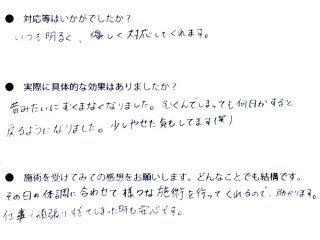 ● 対応等はいかがでしたか?
いつも明るく、優しく対応してくれます。
● 実際に具体的な効果はありましたか?
昔みたいにむくまなくなりました。むくんでしまっても何日かすると
戻るようになりました。少しやせた気もしてます(笑)
● 施術を受けてみての感想をお願いします。どんなことでも結構です。
その日の体調に合わせて様々な施術を行ってくれるので、助かります。
仕事で頑張りすぎてしまった時も安心です。